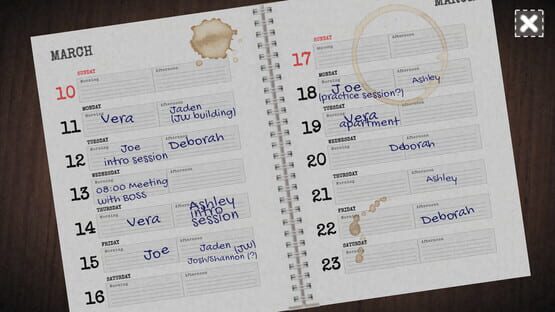 MARCH
SUNDAY
10
Morning
Afternoon
MONDAY
11
Morning
Afternoon
Vera
Jaden
(JW building)
TUESDAY
12
Morning
Afternoon
Joe
intro session
Deborah
WEDNESDAY
13
Morning
Afternoon
08:00 Meeting
with BOSS
THURSDAY
14
Morning
Vera
Ashley
intro
session
FRIDAY
15
Morning
Afternoon
Joe
Jaden (JW)
Josh/Shannon (?)
SATURDAY
16
Morning
Afternoon
SUNDAY
17
Morning
Afternoon
MONDAY
18
Morning
Afternoon
Joe
(practice session?)
Ashley
TUESDAY
19
Morning
Afternoon
Vera
apartment
WEDNESDAY
20
Morning
Afternoon
Deborah
THURSDAY
21
Morning
Afternoon
Ashley
FRIDAY
22
Morning
Afternoon
Deborah
SATURDAY
23
Morning
Afternoon